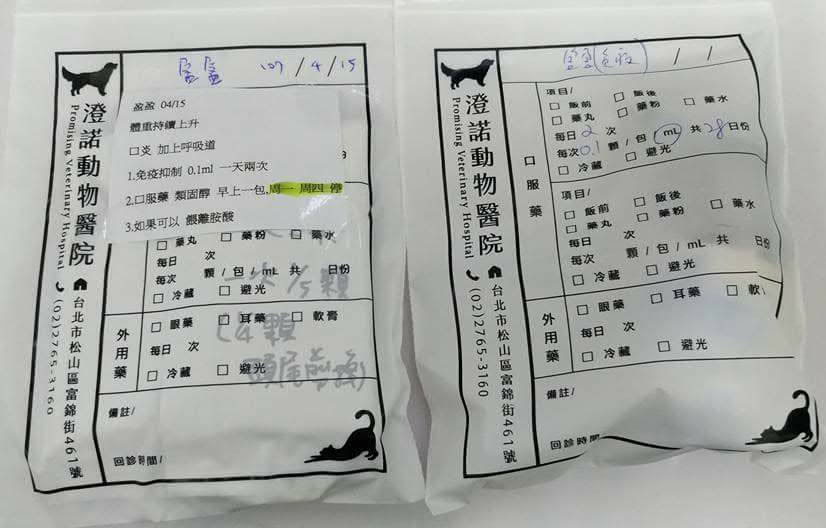 澄諾動物醫院
Promising Veterinary Hospital
台北市松山區富錦街461號
(02)2765-3160
盈盈 107/4/15
盈盈 04/15
體重持續上升
口炎 加上呼吸道
1.免疫抑制 0.1ml 一天兩次
2.口服藥 類固醇 早上一包,周一 周四 停
3.如果可以 餵離胺酸
□ 藥丸 □ 藥粉 □ 藥水
每日 次
每次 顆/包/mL 共 日份
□ 冷藏 □ 避光
一次 1/5 顆
外用藥
□ 眼藥 □ 耳藥 □ 軟膏
每日 次
□ 冷藏 □ 避光
(4顆
備註/
回診時間/
澄諾動物醫院
Promising Veterinary Hospital
台北市松山區富錦街461號
(02)2765-3160
盈盈 / /
口服藥
項目/
□ 飯前 □ 飯後
□ 藥丸 □ 藥粉 □ 藥水
每日 2 次
每次 0.1 顆/包/mL 共 28 日份
□ 冷藏 □ 避光
項目/
□ 飯前 □ 飯後
□ 藥丸 □ 藥粉 □ 藥水
每日 次
每次 顆/包/mL 共 日份
□ 冷藏 □ 避光
外用藥
□ 眼藥 □ 耳藥 □ 軟
每日 次
□ 冷藏 □ 避光
備註/
回診時間